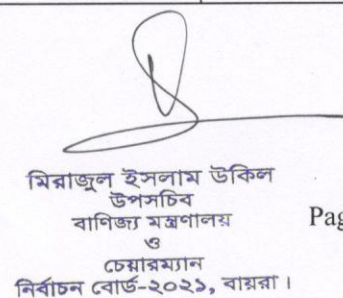 মিরাজুল ইসলাম উকিল
উপসচিব
বাণিজ্য মন্ত্রণালয়
Pag
ও
চেয়ারম্যান
নির্বাচন বোর্ড-২০২১, বায়রা।